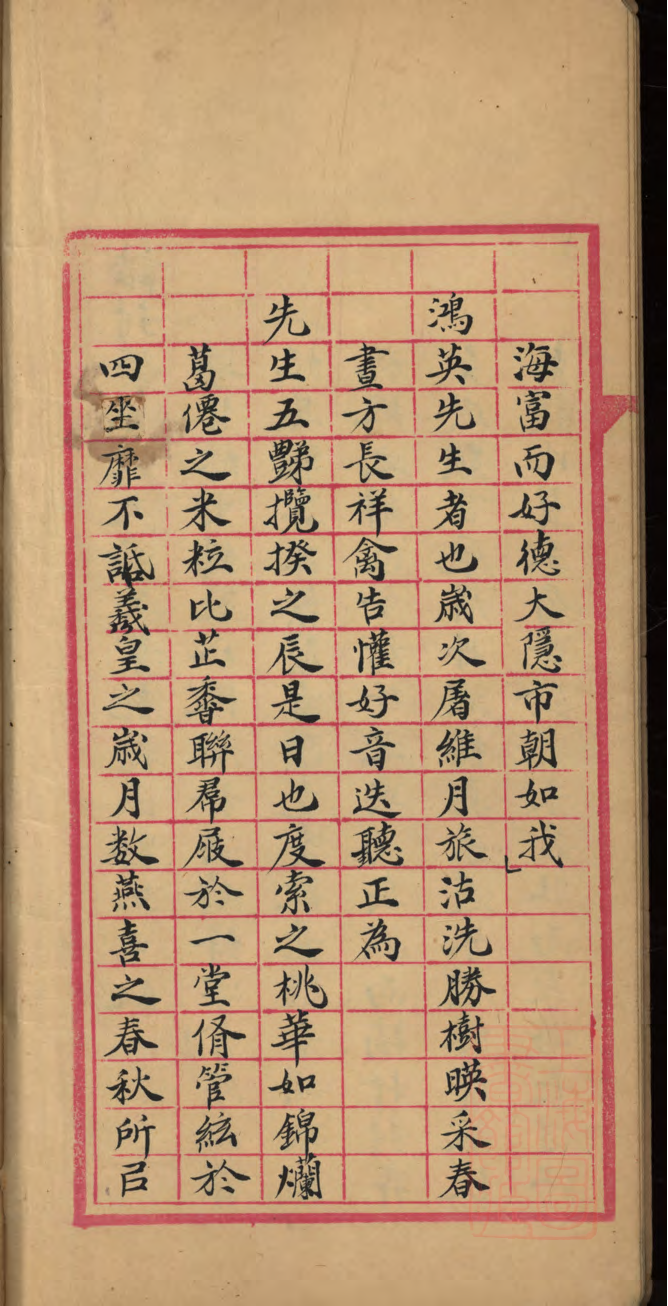 海富而好德大隱市朝如我
鴻英先生者也歲次屠維月旅沽洗勝樹暎采春
晝方長祥禽告懽好音迭聽正為
先生五豑攬揆之辰是日也度索之桃華如錦爛
葛僊之米粒比芷聯帬屐於一堂偦管絃於
四坐靡不羲皇之歲月数燕喜之春秋所㠯